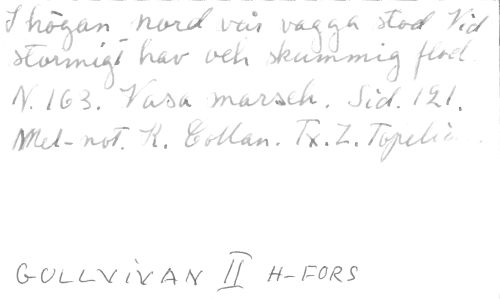 I högan nord vår vagga stod Vid
stormigt hav och skummig flod.
N. 163. Vasa marsch. Sid. 121.
Mel-not. K. Collan. Tx. Z. Topelius.
GULLVIVAN II H-FORS